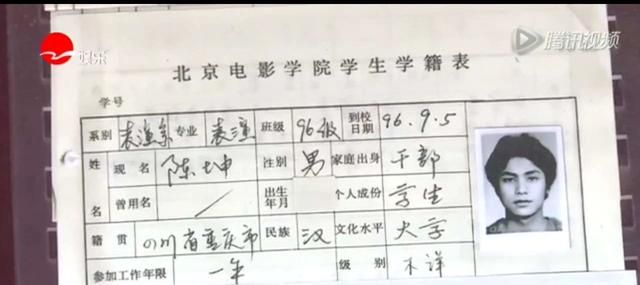 娱乐
腾讯视频
北京电影学院学生学籍表
学号
系别 表演系 专业 表演 班级 96级 到校日期 96.9.5
姓名 现名 陈坤 性别 男 家庭出身 干部
曾用名 / 出生年月 个人成份 学生
籍贯 四川省重庆市 民族 汉 文化水平 大学
参加工作年限 一年 级别 不详